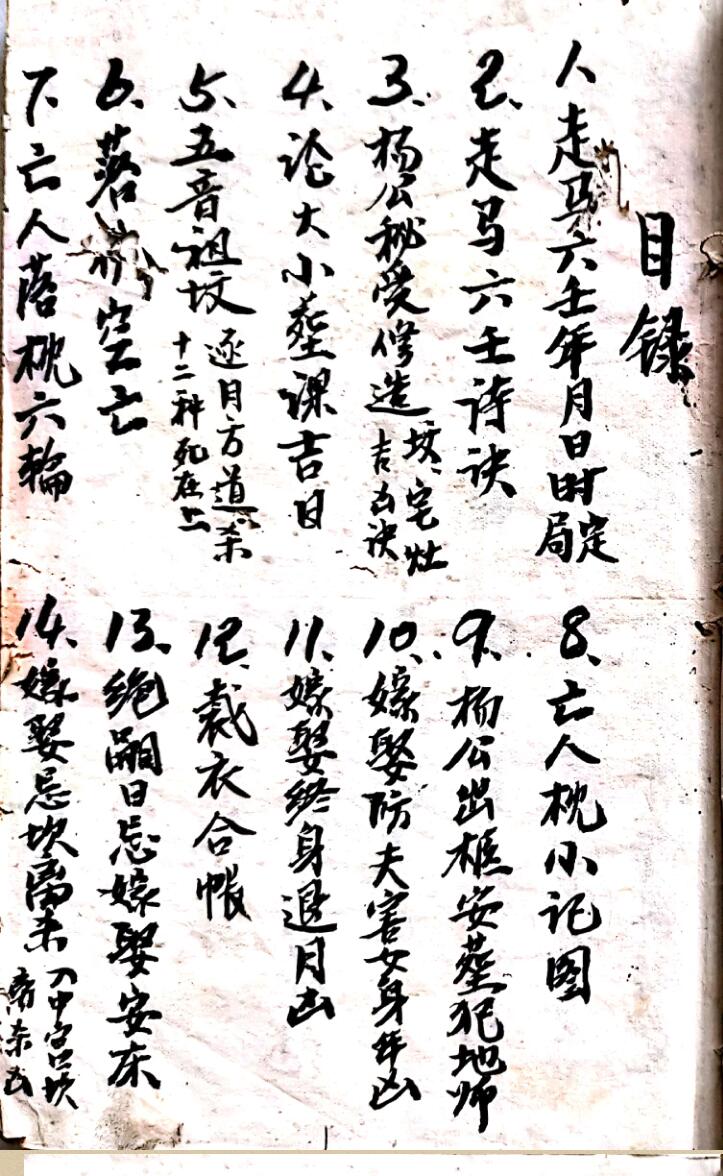 目录
1、走马六壬年月日时定局
2、走马六壬诗诀
3、杨公秘受修造坟、宅、灶吉凶诀
4、论大小塟课吉日
5、五音祖坟逐月方道杀十二种死在上
6、落 空亡
7、亡人落枕六轮
8、亡人枕小记图
9、杨公出樵安塟犯地师
10、嫁娶防夫害女身年凶
11、嫁娶终身退月凶
12、裁衣合帐
13、绝嗣日忌嫁娶安床
14、嫁娶忌坎离杀